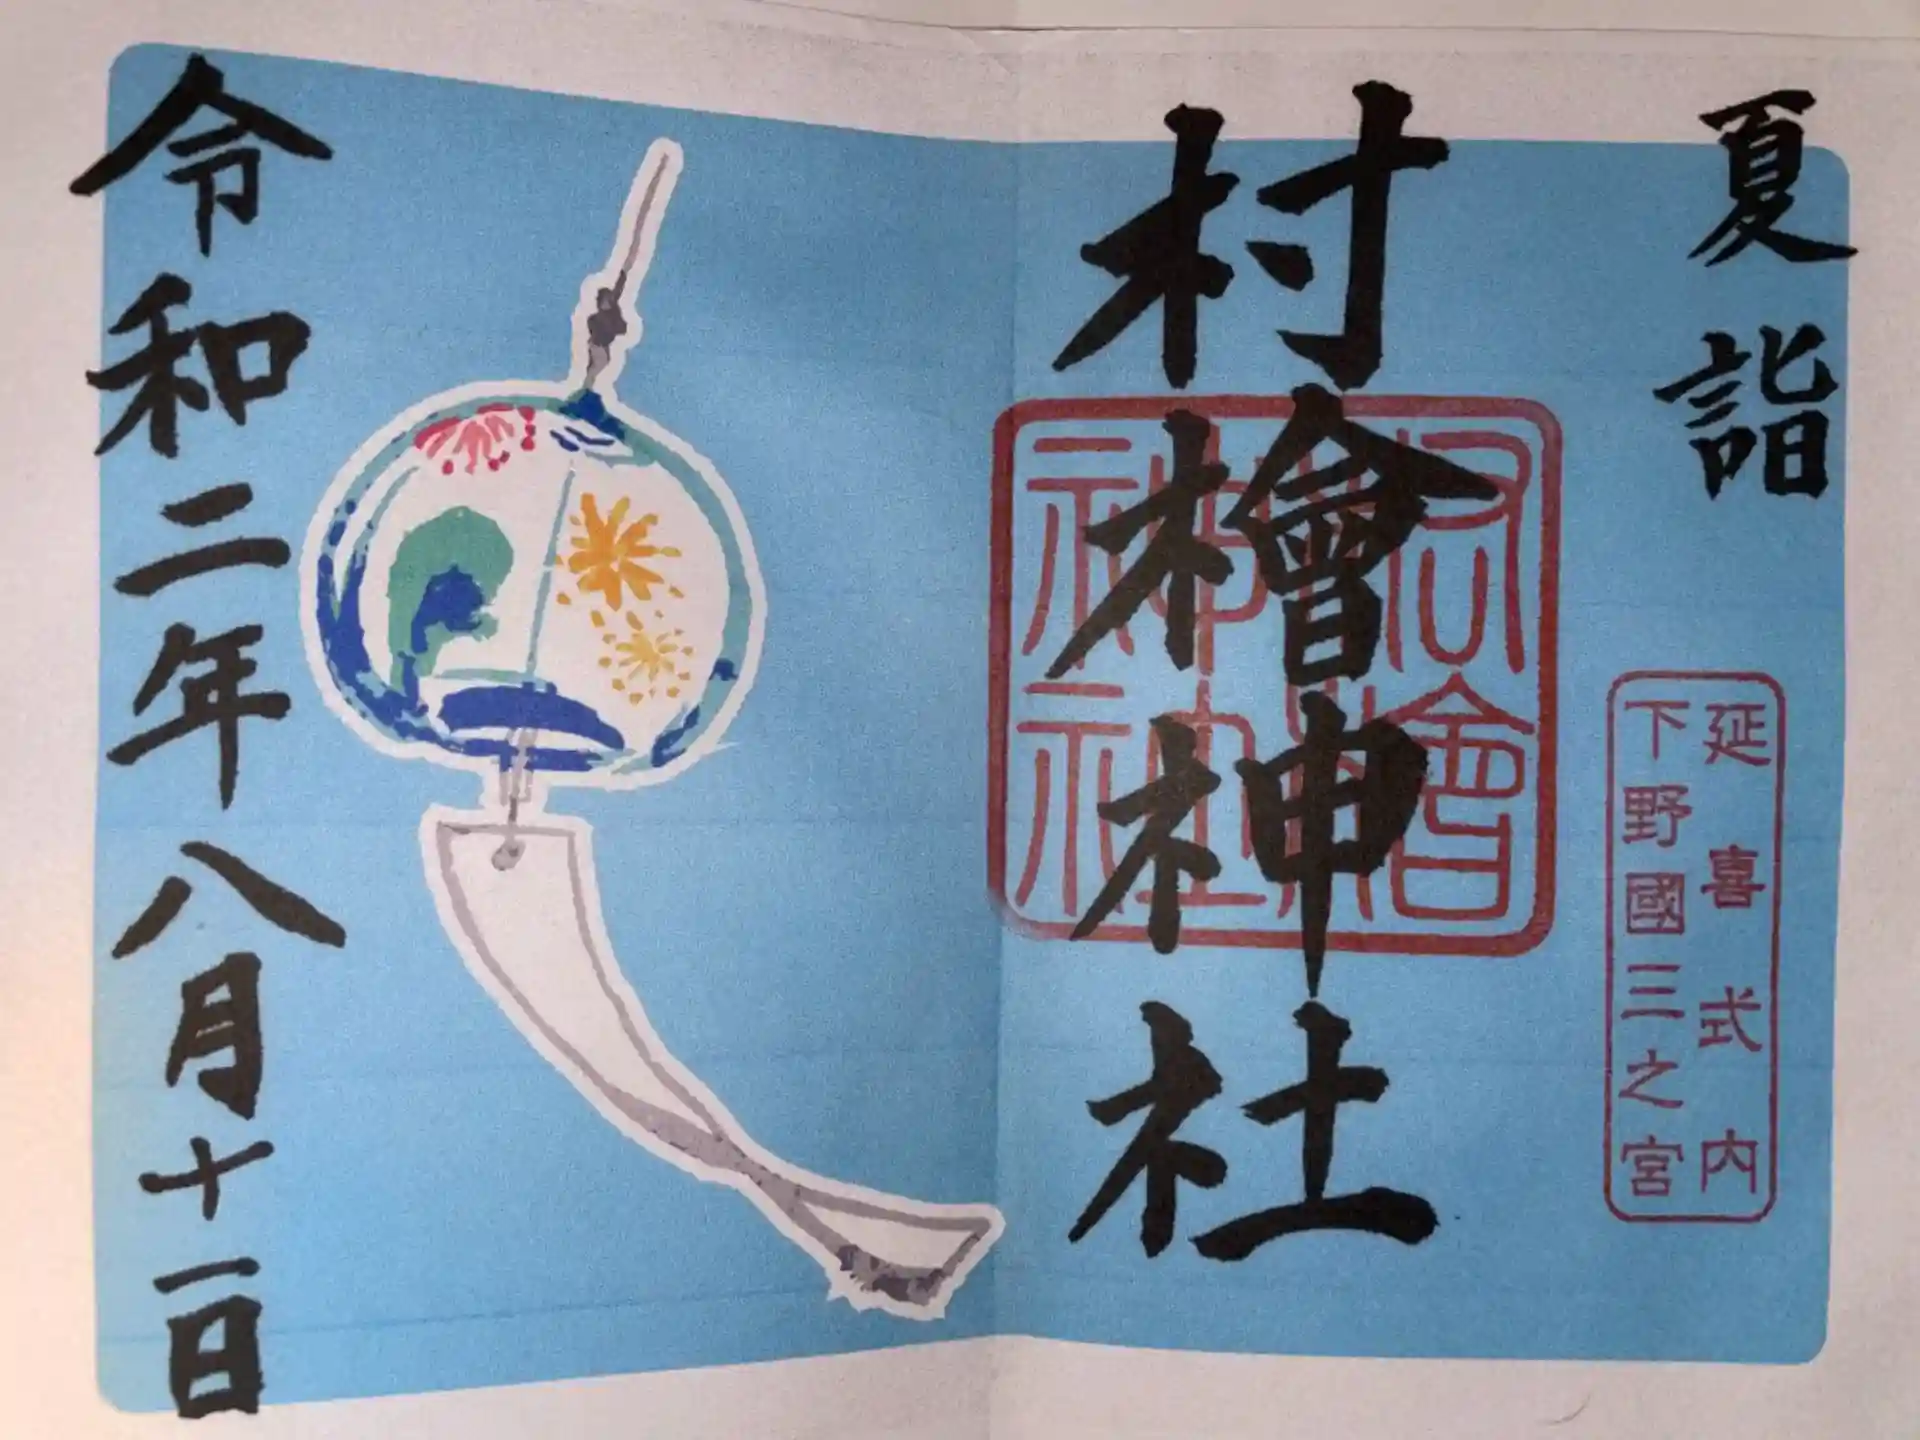 夏詣
延喜式内
下野國三之宮
村檜神社
村檜神社
令和二年八月十一日